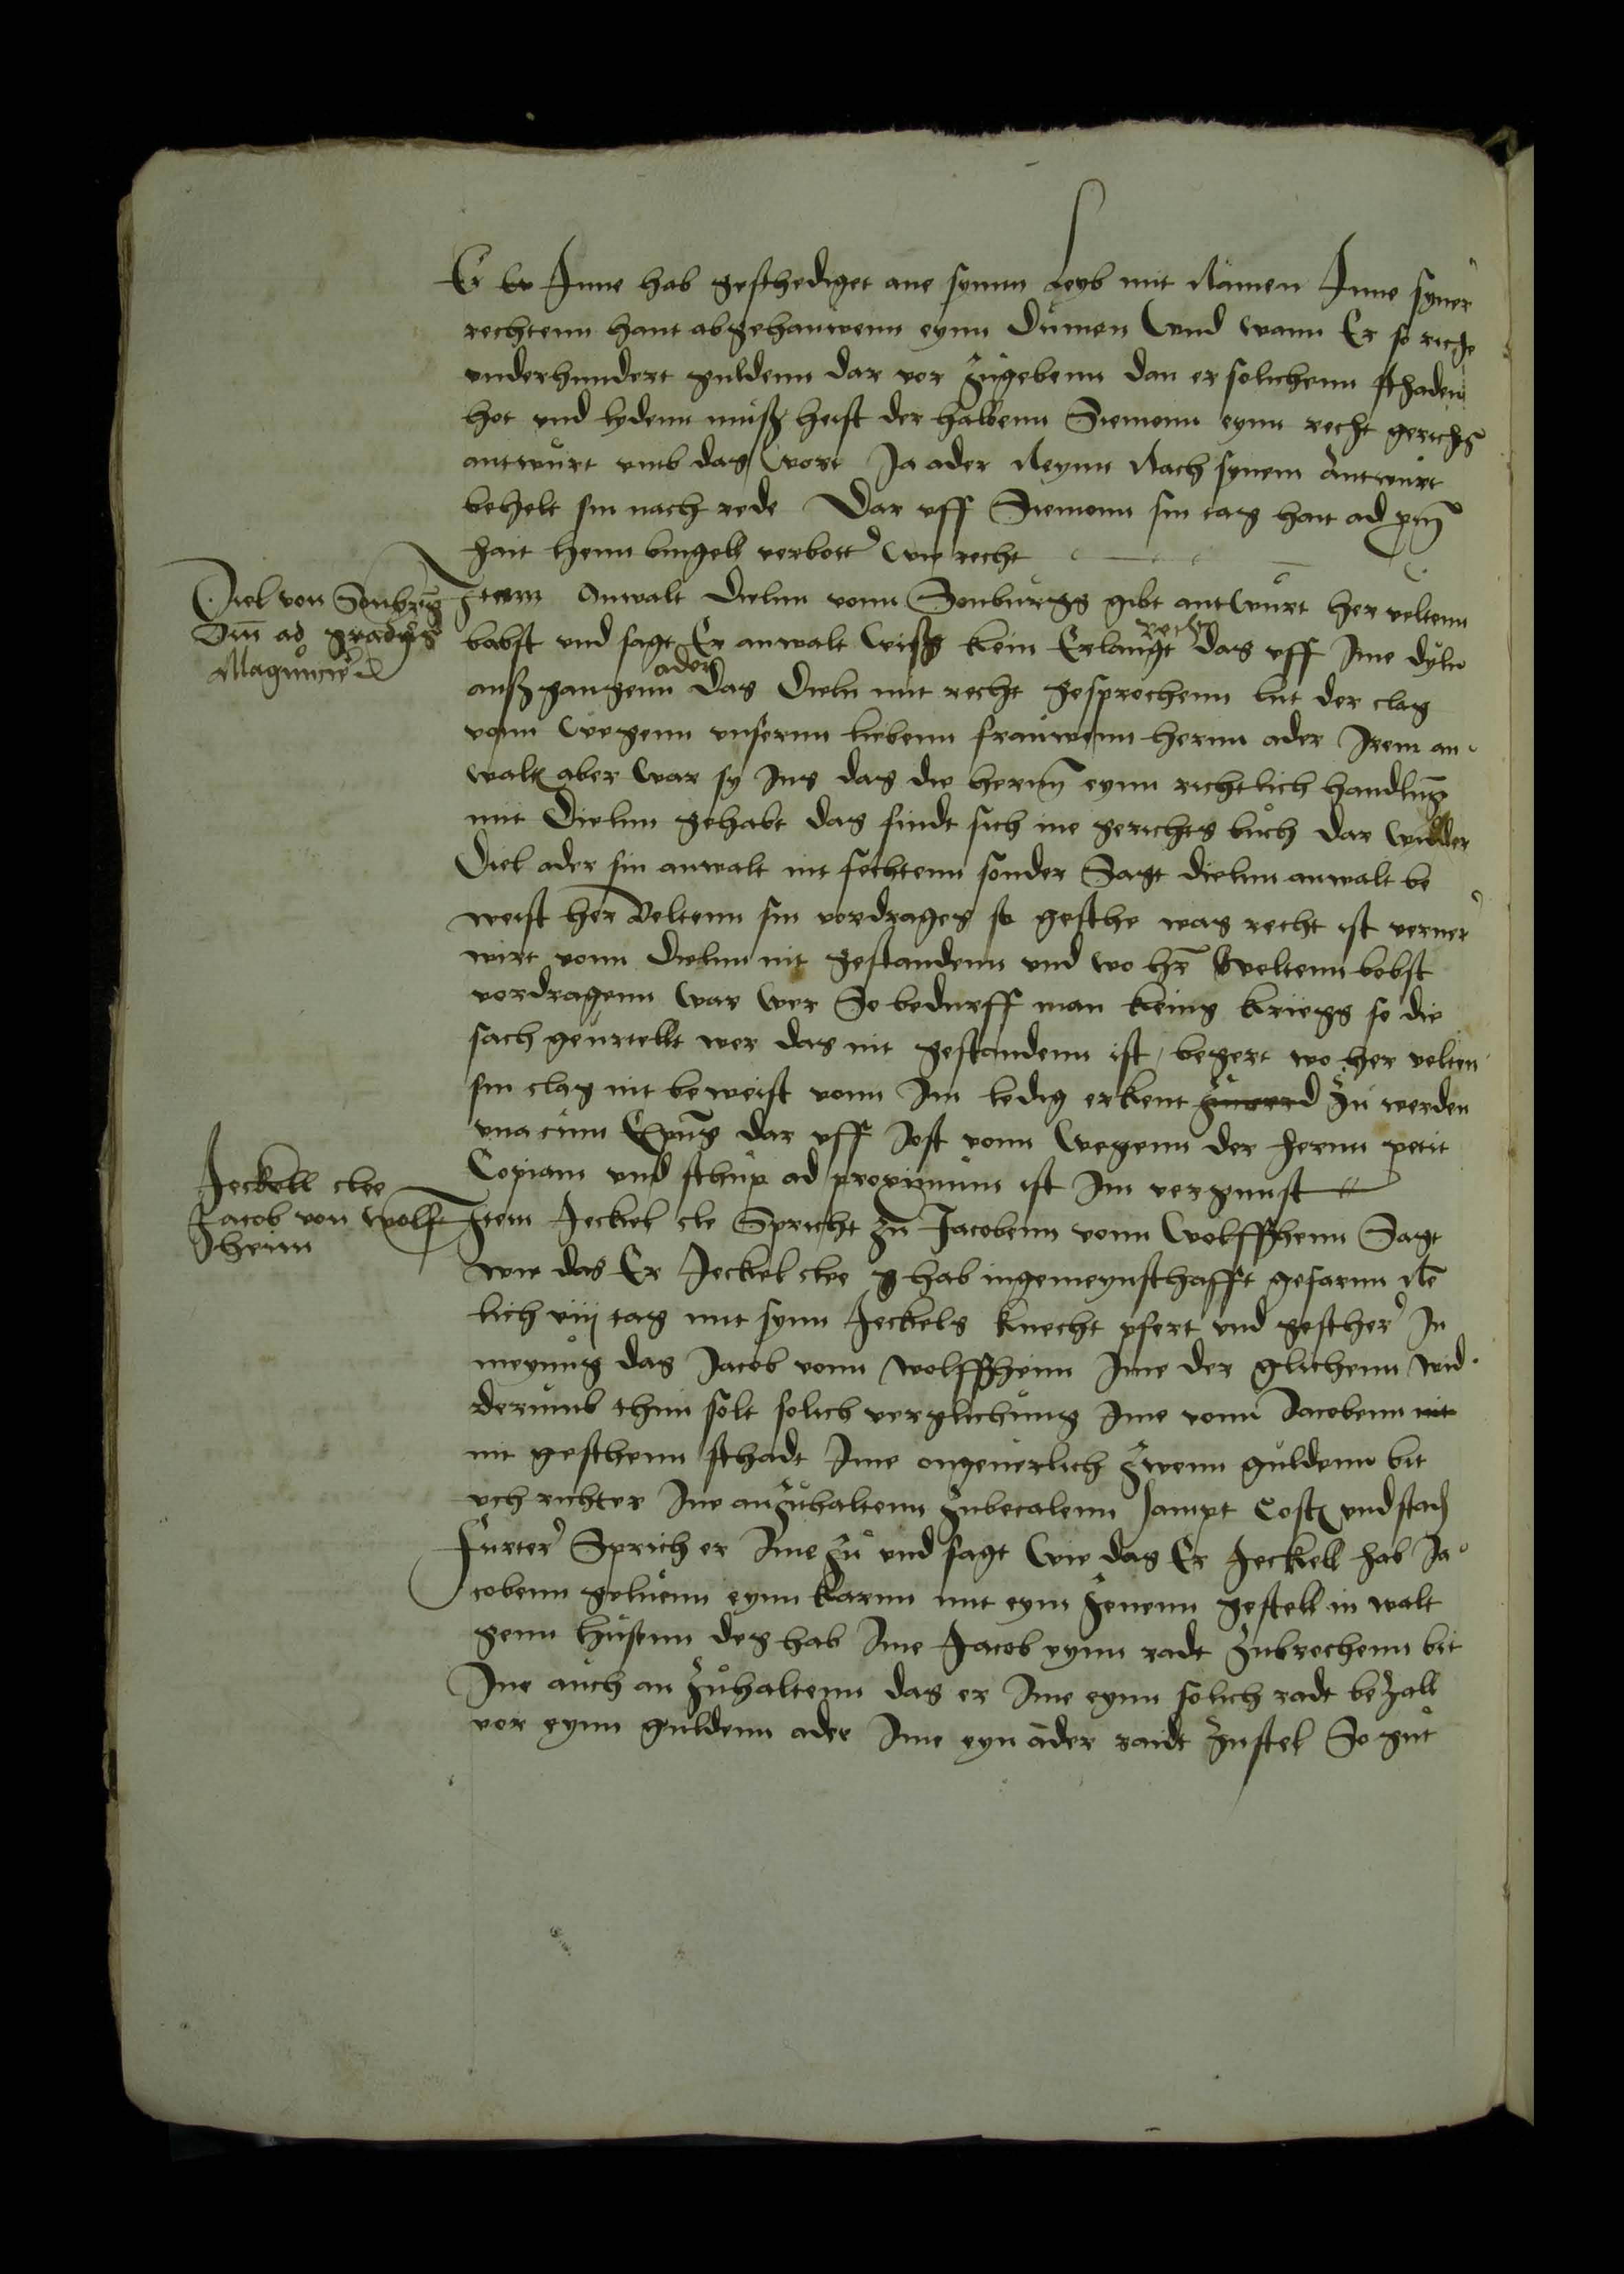 Er Er Inne hab gesthediget ane synnn Leyb mit Namen Inne syner
rechtenn hant abgehauwenn eynn Dumen Und wann Er so riche
underhundert guldenn dar vor zugebenn dan er solichenn sthaden
hot und lydenn muß heist der halbenn Siemonn eynn recht gerichs
antwurt umb das Wort Ja ader Neynn Nach synem Antwurt
behelt sin nach rede Dar uff Siemonn sin tag hait ad prm̄
hait henn bingell verbott Wie recht
Diel von Sonberg
Dm̄ ad gradus
Magunciē
Item Anwalt Dielnn vonn Sonburgg gibt antwurt her veltenn
babst und sagt Er anwalt wißs kein Erlangt recht das uff Ime dyln
außgangenn ader das Dieln mit recht gesprochenn lut der clag
vonn Wegenn unsernn liebenn frauwenn hernn ader Irem an
walt aber War sy Ings das die hernn eynn richtlich handlung
mit Dielnn gehabt das findt sich ine gerichts buch dar widder
Diel ader sin anwalt nit fechtenn sonder Sagt dielnn anwalt be
weist her Veltenn sin vordrages so gesthe was recht ist verner
wirt vonn Dielnn nit gestandenn und wo hr̄ Veltenn bobst
vordragenn War Wer So bedurff man keins kriegs so die
sach geurtellt wer das nit gestandenn ist begert wo her velten
sin clag nit beweist vonn Im ledig erkent zuwerd zu werden
una cum Expns̄ dar uff Jost vonn Wegenn der hernn petit
Copiam und sthup ad proximum ist Im vergunst
Jeckell clee
Jacob von Wolfs
heim
Item Jeckel cle Spricht zu Jacobenn vonn Wolffshenn Sagt
Wie das Er Jeckel clee g hab ingemeynsthafft gefarnn Nē
lich viij tag mit synn Jeckels knecht pfert und gesther In
meynung das Jacob vonn Wolffsheim Ime der glichenn wid
derumb thun solt solich verglichung Ime vonn Jacobenn nit
nit gesthenn sthadt Ime ongeuerlich zwenn guldenn bit
uch richter Ine anzuhaltenn zubecalenn sampt Cost und stad
Furter Sprich er Ime zu und sagt Wie das Er Jeckell hab Ja
cobenn geluenn eynn karnn mit eym zenenn gestell in walt
genn husenn des hab Ime Jacob eynn radt zubrochenn bit
Ine auch an zuhaltenn das er Ime eynn solich radt bezall
vor eynn guldenn ader Ime eyn ader raidt zustel So gut